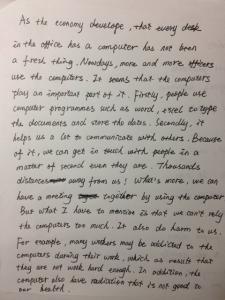 As the economy develope, that every desk
in the office has a computer has not been
a fresh thing. Nowdays, more and more officers
use the computers. It seems that the computers
play an important part of it. Firstly, people use
computer programmes such as word, excel to type
the documents and store the datas. Secondly, it
helps us a lot to communicate with others. Because
of it, we can get in touch with people in a
matter of second even they are. Thousands
distances away from us! What's more, we can
have a meeting together by using the computer
But what I have to mention is that we can't rely
the computers too much. It also do harm to us.
For example, many workers may be addicted to the
computers daming their work, which as result that
they are not work hard enough. In addiction, the
computer also have radiation that is not good to
our health.